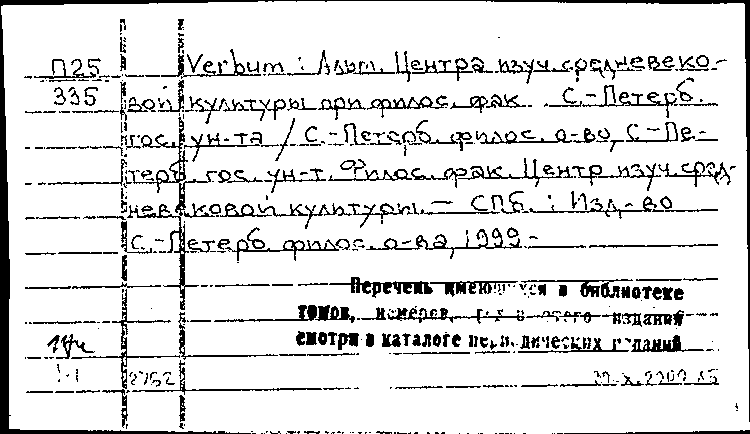 П25
335
Verbum : Альм. Центра изуч. средневеко-
вой культуры при филос. фак. С.-Петерб.
гос. ун-та / С.-Петерб. филос. о-во, С.-Пе-
терб. гос. ун-т. Филос. фак. Центр изуч. сред-
невековой культуры. — СПб. : Изд-во
С.-Петерб. филос. о-ва, 1999 -
Перечень имеющихся в библиотеке
томов, номеров, изданий
смотри в каталоге периодических изданий
2752